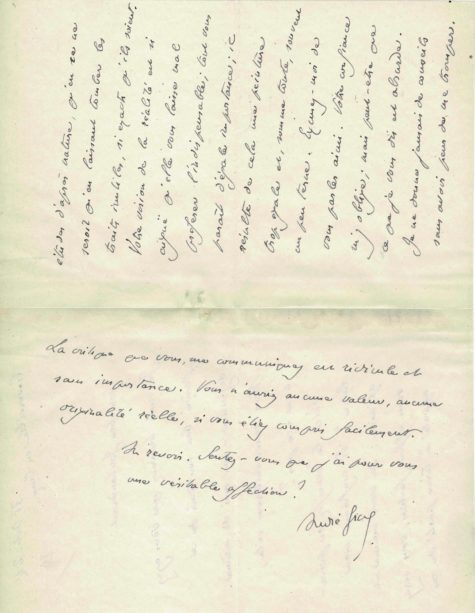 études d'après nature, qu'en ne
serait qu'en laissant tomber les
traits inutiles, si exacts qu'ils soient.
Votre vision de la réalité est si
aiguë qu'elle vous laisse mal
préférer l'indispensable; tout vous
paraît d'égale importance; il
résulte de cela une peinture
trop égale et, somme toute, souvent
un peu terne. Excusez-moi de
vous parler ainsi. Votre confiance
m'y oblige; mais peut-être que
ce que je vous dis est absurde.
Je ne donne jamais de conseils
sans avoir peur de me tromper.
La critique que vous me communiquez est ridicule et
sans importance. Vous n'auriez aucune valeur, aucune
originalité réelle, si vous étiez compris facilement.
Au revoir. Sentez-vous que j'ai pour vous
une véritable affection?
André